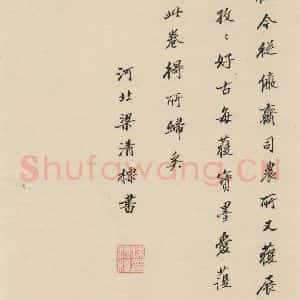 今從儼齋司農所又獲展
孜〻好古每獲寶墨愛護
此卷得所歸矣
河北梁清標書
Shufawang.Cn